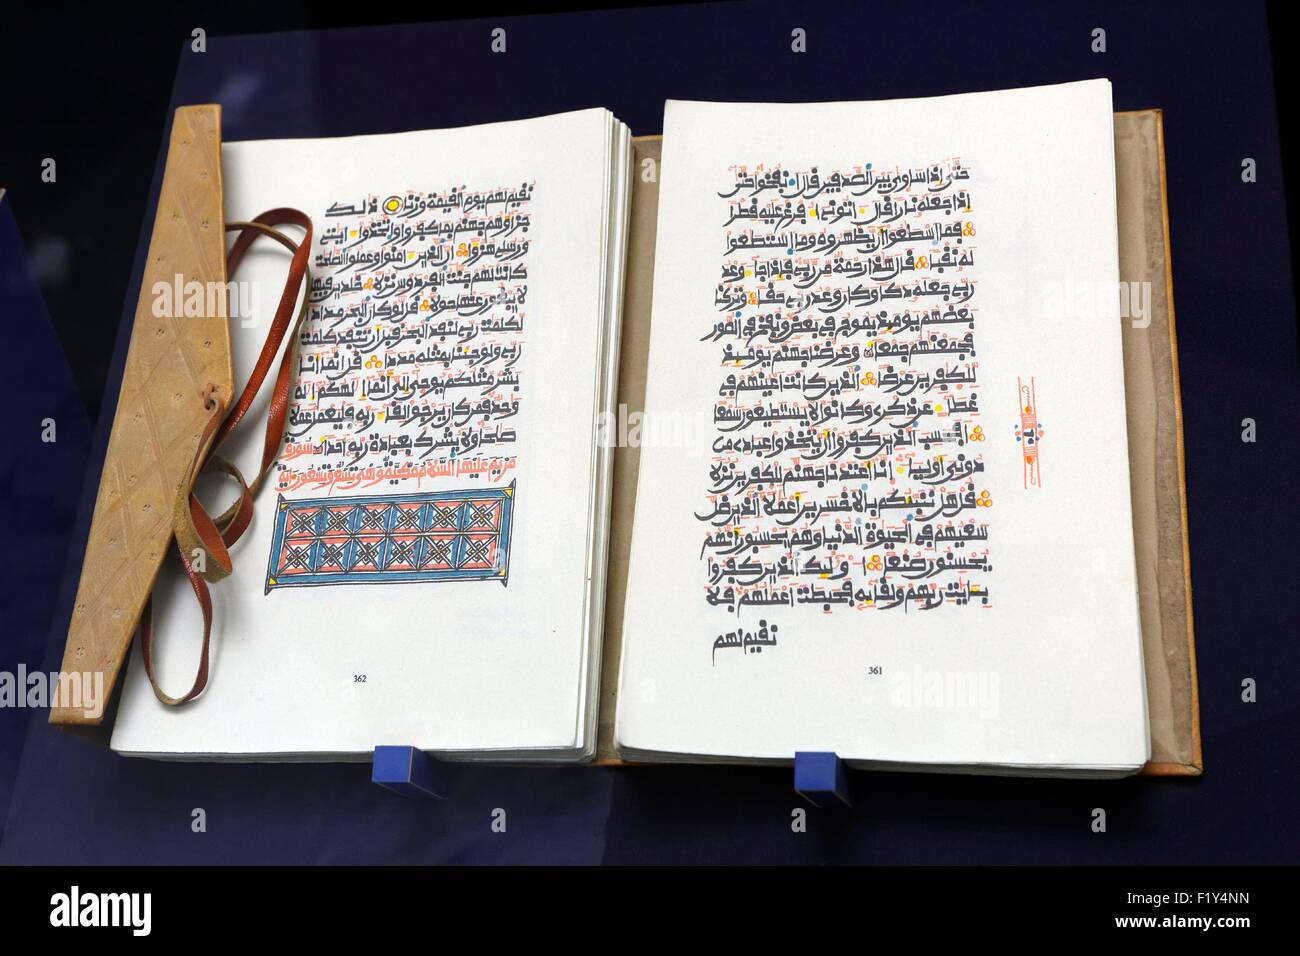 حتى إذا ساوى بين الصدفين قال انفخوا حتى
إذا جعله نارا قال اتوني أفرغ عليه قطرا
فما اسطعوا أن يظهروه وما استطعوا
له نقبا قال هذا رحمة من ربي فإذا جاء وعد
ربي جعله دكا وكان وعد ربي حقا وتركنا
بعضهم يومئذ يموج في بعض ونفخ في الصور
فجمعنهم جمعا وعرضنا جهنم يومئذ
للكفرين عرضا الذين كانت أعينهم في
غطاء عن ذكري وكانوا لا يستطيعون سمعا
أفحسب الذين كفروا أن يتخذوا عبادي من
دوني أولياء إنا أعتدنا جهنم للكفرين نزلا
قل هل ننبئكم بالأخسرين أعملا الذين ضل
سعيهم في الحيوة الدنيا وهم يحسبون أنهم
يحسنون صنعا أولئك الذين كفروا
بايت ربهم ولقائه فحبطت أعملهم فلا
نقيم لهم
361
نقيم لهم يوم القيمة وزنا ذلك
جزاؤهم جهنم بما كفروا واتخذوا ايتي
ورسلي هزؤا إن الذين امنوا وعملوا الصلحت
كانت لهم جنت الفردوس نزلا خلدين فيها
لا يبغون عنها حولا قل لو كان البحر مدادا
لكلمت ربي لنفد البحر قبل أن تنفد كلمت
ربي ولو جئنا بمثله مددا قل إنما أنا
بشر مثلكم يوحى إلي أنما إلهكم إله
وحد فمن كان يرجوا لقاء ربه فليعمل عملا
صلحا ولا يشرك بعبادة ربه أحدا سورة
مريم عليها السلام مكية وهي تسع وتسعون اية
362
alamy
Image ID: F1Y4NN
www.alamy.com